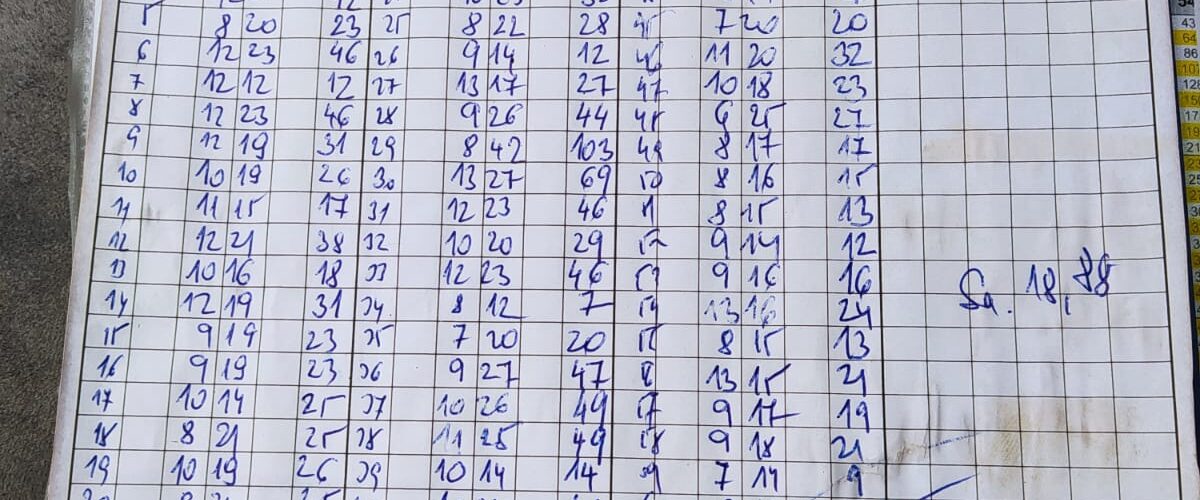 5 8 20 23 25 8 22 28 45 7 20 20
6 12 23 46 26 9 14 12 46 11 20 32
7 12 12 12 27 13 17 27 47 10 18 23
8 12 23 46 28 9 26 44 48 9 25 27
9 12 19 31 29 8 42 103 49 8 17 17
10 10 19 26 30 13 27 69 50 8 16 15
11 11 15 17 31 12 23 46 51 8 15 13
12 12 21 38 32 10 20 29 52 9 14 12
13 10 16 18 33 12 23 46 53 9 16 16
14 12 19 31 34 8 12 7 54 13 16 24
15 9 19 23 35 7 20 20 55 8 15 13
16 9 19 23 36 9 27 47 13 15 21
17 10 14 25 37 10 26 49 57 9 17 19
18 8 21 25 38 11 25 49 58 9 18 21
19 10 19 26 39 10 14 14 59 7 14 9
Sa. 18,88